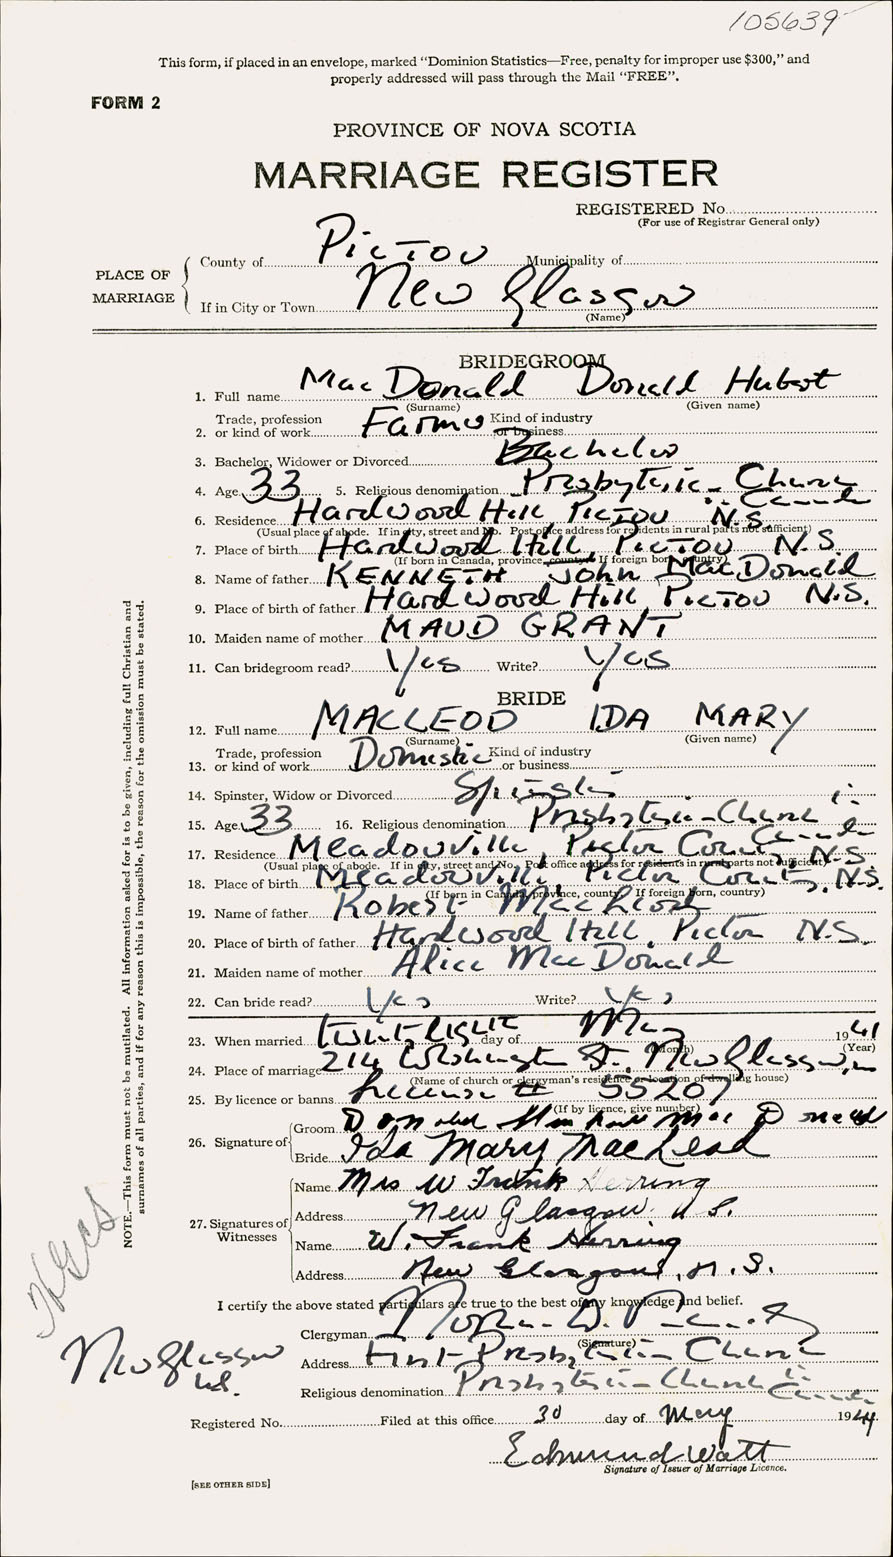 105639
This form, if placed in an envelope, marked “Dominion Statistics—Free, penalty for improper use $300,” and
properly addressed will pass through the Mail “FREE”.
FORM 2
PROVINCE OF NOVA SCOTIA
MARRIAGE REGISTER
REGISTERED No.
(For use of Registrar General only)
PLACE OF MARRIAGE
County of Pictou Municipality of
If in City or Town New Glasgow
(Name)
BRIDEGROOM
1. Full name MacDonald Donald Hubert
(Surname) (Given name)
2. Trade, profession or kind of work Farmer Kind of industry or business
3. Bachelor, Widower or Divorced Bachelor
4. Age 33 5. Religious denomination Presbyterian Church
in Canada
6. Residence Hardwood Hill Pictou N.S.
(Usual place of abode. If in city, street and No. Post office address for residents in rural parts not sufficient)
7. Place of birth Hardwood Hill, Pictou N.S.
(If born in Canada, province, county. If foreign born, country)
8. Name of father KENNETH John MacDonald
9. Place of birth of father Hardwood Hill Pictou N.S.
10. Maiden name of mother MAUD GRANT
11. Can bridegroom read? Yes Write? Yes
BRIDE
12. Full name MACLEOD IDA MARY
(Surname) (Given name)
13. Trade, profession or kind of work Domestic Kind of industry or business
14. Spinster, Widow or Divorced Spinster
15. Age 33 16. Religious denomination Presbyterian Church in
Canada
17. Residence Meadowville, Pictou County N.S.
(Usual place of abode. If in city, street and No. Post office address for residents in rural parts not sufficient)
18. Place of birth Meadowville Pictou County, N.S.
(If born in Canada, province, county. If foreign born, country)
19. Name of father Robert MacLeod
20. Place of birth of father Hardwood Hill, Pictou N.S.
21. Maiden name of mother Alice MacDonald
22. Can bride read? Yes Write? Yes
23. When married day of May 19
(Month) (Year)
24. Place of marriage 214 Washington St. New Glasgow,
(Name of church or clergyman's residence or location of dwelling house)
25. By licence or banns License # 55207
(If by licence, give number)
26. Signature of
Groom Donald MacDonald
Bride Ida Mary MacLeod
27. Signatures of Witnesses
Name Mrs W Frank Herring
Address New Glasgow N.S.
Name W. Frank Herring
Address New Glasgow, N.S.
I certify the above stated particulars are true to the best of my knowledge and belief.
Clergyman
(Signature)
Address First Presbyterian Church
New Glasgow
N.S.
Religious denomination Presbyterian Church in
Canada
Registered No. Filed at this office 30 day of May 1944
Edmund Watt
Signature of Issuer of Marriage Licence.
[SEE OTHER SIDE]
NOTE.—This form must not be mutilated. All information asked for is to be given, including full Christian and
surnames of all parties, and if for any reason this is impossible, the reason for the omission must be stated.